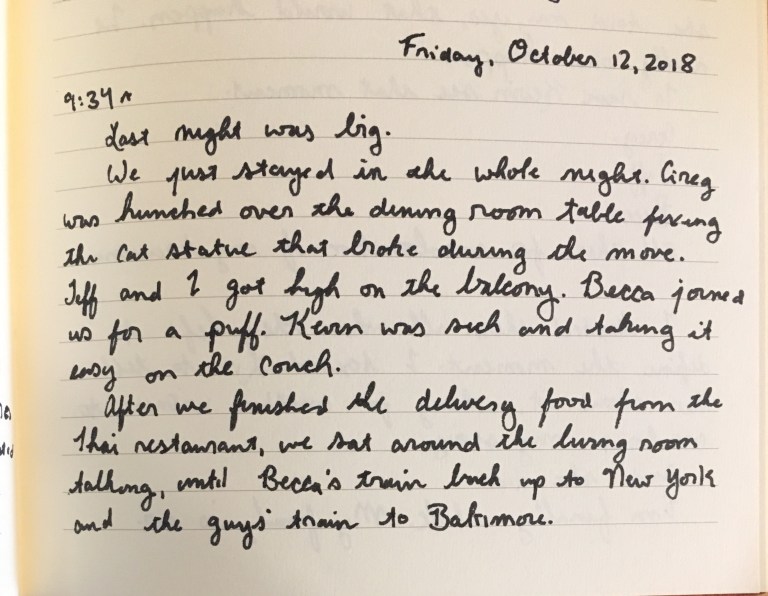 Friday, October 12, 2018
9:34 A
Last night was big.
We just stayed in the whole night. Greg
was hunched over the dining room table fixing
the cat statue that broke during the move.
Jeff and I got high on the balcony. Becca joined
us for a puff. Kevin was sick and taking it
easy on the couch.
After we finished the delivery food from the
Thai restaurant, we sat around the living room
talking, until Becca's train back up to New York
and the guys' train to Baltimore.